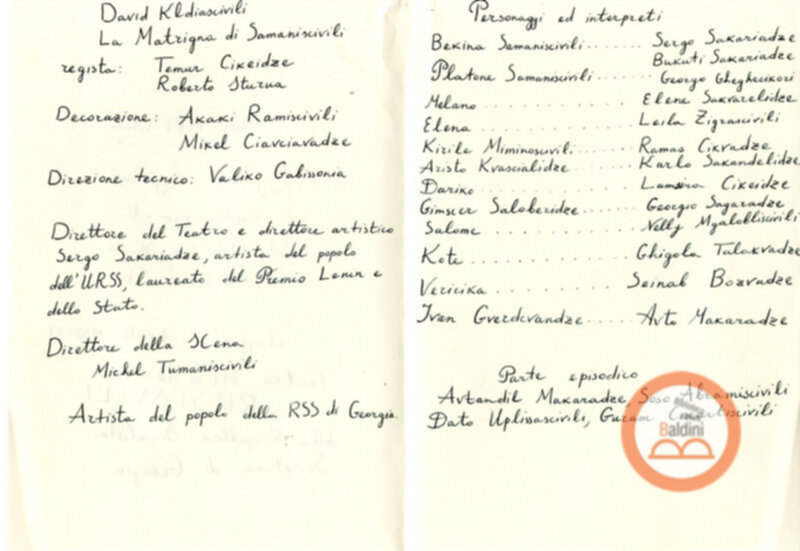 David Kldiascivili
La Matrigna di Samaniscivili
regista: Temur Cikeidze
Roberto Sturua
Decorazione: Akaki Ramiscivili
Mikel Ciavciavadze
Direzione tecnico: Valiko Gabissonia
Direttore del Teatro e direttore artistico
Sergo Sakariadze, artista del popolo
dell'URSS, laureato del Premio Lenin e
dello Stato.
Direttore della SCena
Michel Tumaniscivili
Artista del popolo della RSS di Georgia.
Personaggi ed interpreti
Bekina Samaniscivili....... Sergo Sakariadze
Bukuti Sakariadze
Platone Samaniscivili...... Georgo Gheghecikori
Melano................ Elene Sakvarelidze
Elena................ Leila Zigrascivili
Kirile Miminoscivili..... Ramas Cikvadze
Aristo Kvascialidze...... Karlo Sakandelidze
Dariko............... Lamsira Cikeidze
Gimscer Saloberidze....... Georgio Sagaradze
Salome............ Nelly Mgaloblisvili
Kote............. Ghigola Talakvadze
Vericika............ Seinab Bozvadze
Ivan Gverdevandze..... Avto Makaradze
Parte episodico
Avtandil Makaradze, Soso Abramiscivili
Dato Uplissascivili, Guram
Baldini